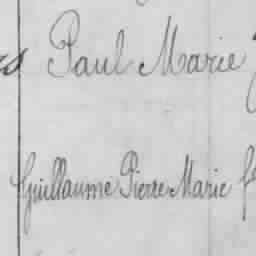 Paul Marie
Guillaume Pierre Marie